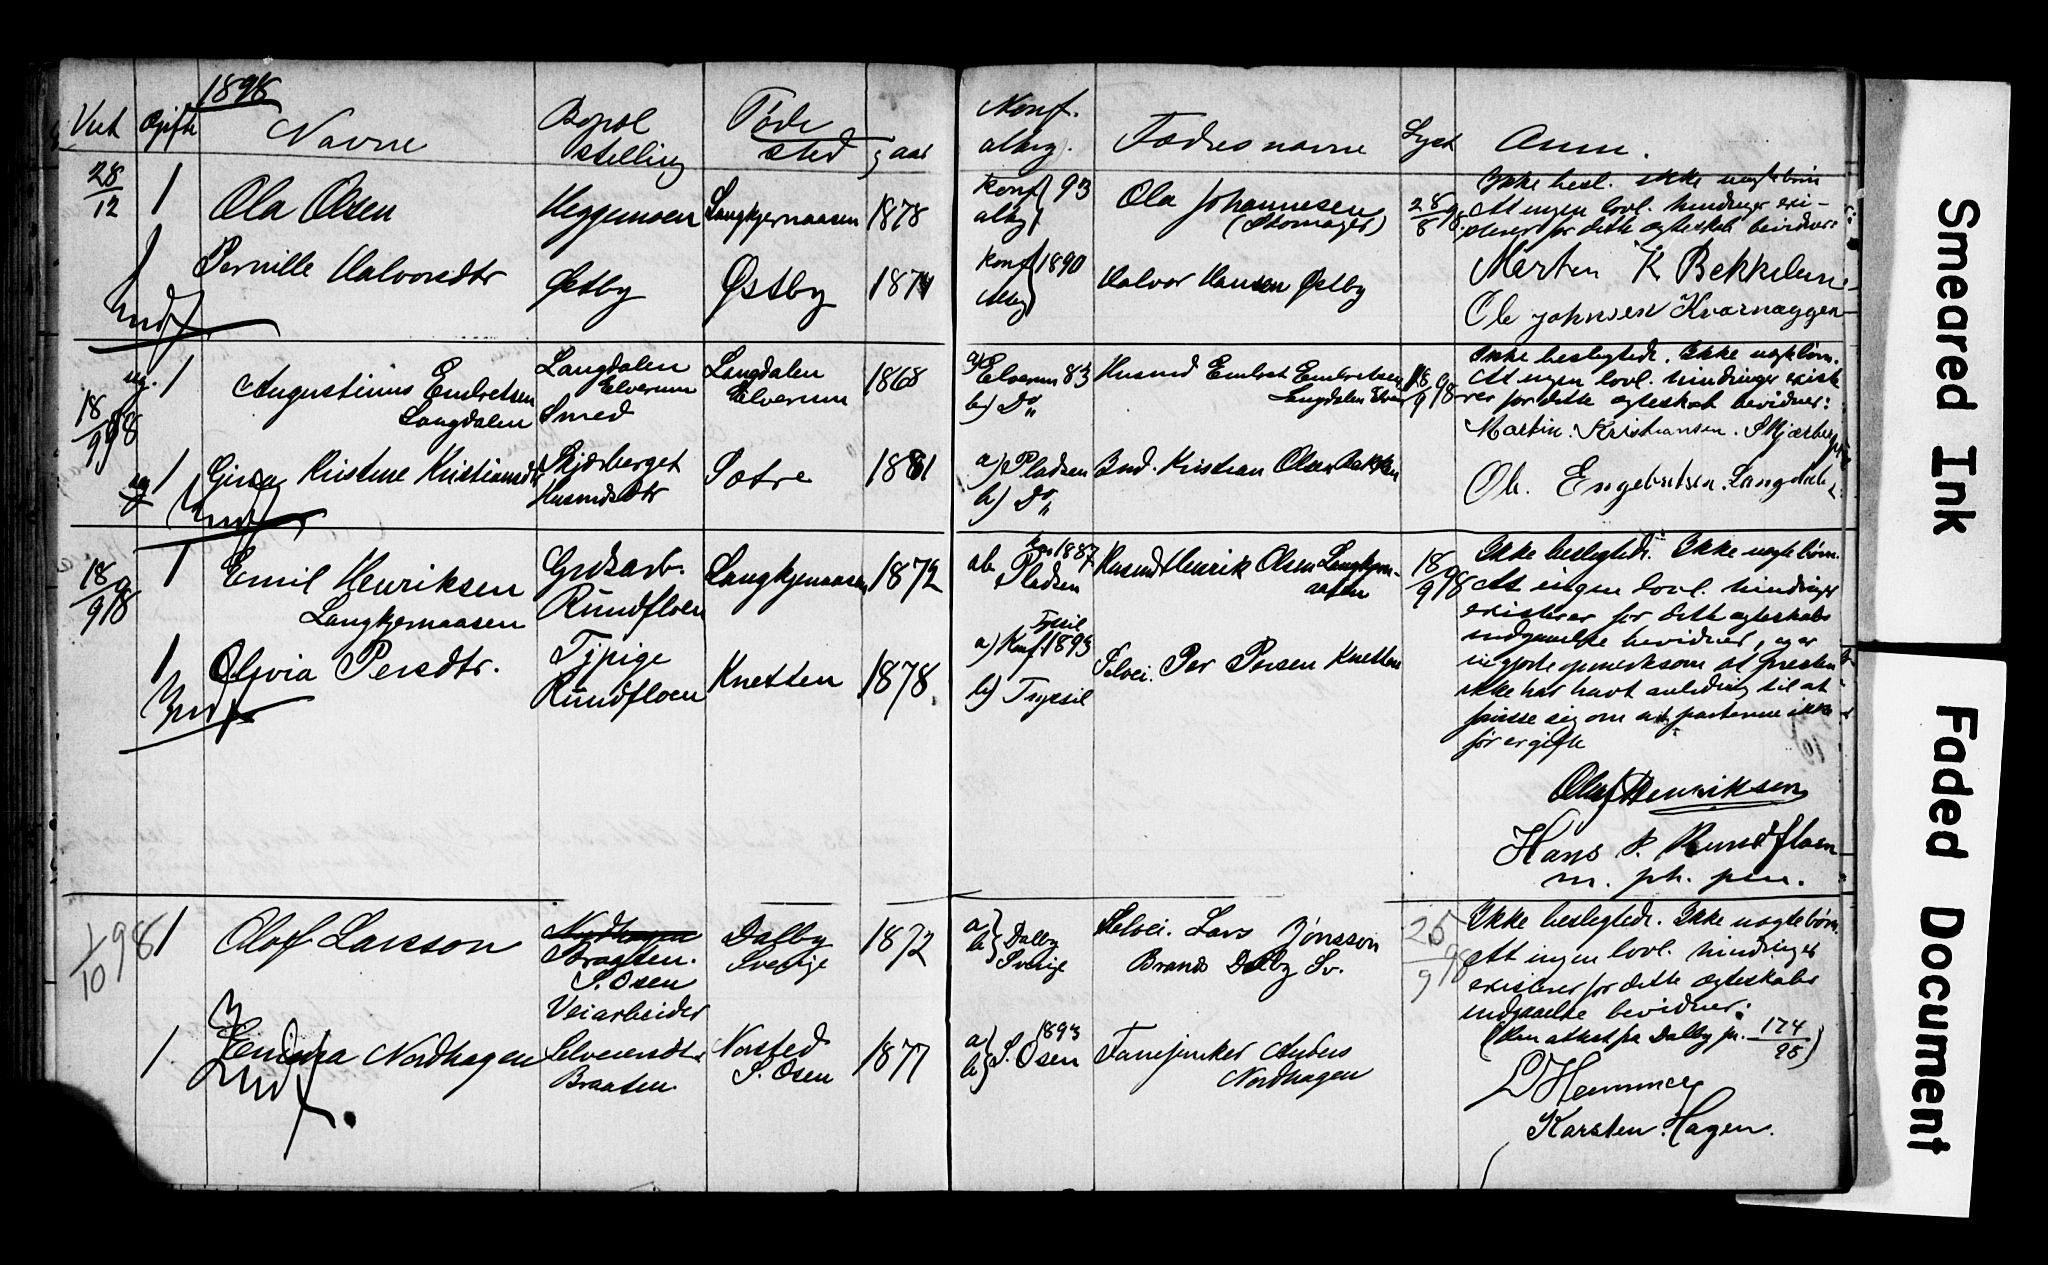 1898
Viet Gifte Navne Bopæl Føde Konf. Fædres navne Lyst Anm.
stilling sted og aar altrg.
28/12 1 Ola Olsen Heggemoen Langkjernaasen 1878 konf altrg } 93 Ola Johannesen (Skomager) 28/8 98
Ikke besl. Ikke nogle børn
At ingen lovl. hindringer exi-
sterer for dette ægteskab bevidner:
Pernille Halvorsdtr Østby Østby 1874 konf altrg } 1890 Halvor Hansen Østby
Marten K Bekkelune
Ole Johnsen Kværnæggen
Indf
18/9 98 ug. 1 Augustinus Embretsen Langdalen
Langdalen Elverum Smed
Langdalen Elverum 1868
a) Elverum 83
b) Do
Husmd Embret Embretsen
Langdalen Elver
18/9 98
Ikke beslegtede. Ikke nogle børn.
At ingen lovl. hindringer existe
rer for dette ægteskab bevidner:
Martin Kristiansen Skjærberget
ug 1 Gina Kristine Kristiansdtr
Skjærberget
Husmdsdtr
Sætre 1881
a) Pladsen
b) Do
Bmd. Kristian Olsen Bakken
Ole Engebretsen Langdalen
Indf
18/9 98 1 Emil Henriksen
Langkjernaasen
Grdsarb.
Rundfloen
Langkjernaasen 1872
ab Kon 1887
Pladsen
Husmd Henrik Olsen Langkjern-
aasen
18/9 98
Ikke beslegtede. Ikke nogle børn.
At ingen lovl. hindringer
existerer for dette ægteskabs
indgaaelse bevidner, og er
vi gjorte opmerksom at presten
ikke har havt anledning til at
forvisse sig om at parterne ikke
før er gifte
1 Olivia Persdtr.
Tjpige
Rundfloen
Knetten 1878
Trysil
a) Konf. 1893
b) Trysil
Selvei. Per Persen Knetten
Indf
Olaf Henriksen
Hans P. Rundfloen
m. ph. pen.
1/10 98 1 Olof Larsson
Nordhagen
Braaten.
S. Osen
Veiarbeider
Dalby
Sverige
1872
a) b) } Dalby
Sverige
Selvei. Lars Jönsson
Brands Dalby Sv.
25/9 98
Ikke beslegtede. Ikke nogle børn.
At ingen lovl. hindringer
existerer for dette ægteskabs
indgaaelse bevidner:
(Den attest fra Dalby jn. 174/98)
1 Emma Nordhagen
Selveiersdtr
Braaten
Norsted
S. Osen
1877
a) b) } 1893
S. Osen
Fanejunker Anders
Nordhagen
L Hammer
Karsten Hagen.
Indf.
Smeared Ink
Faded Document